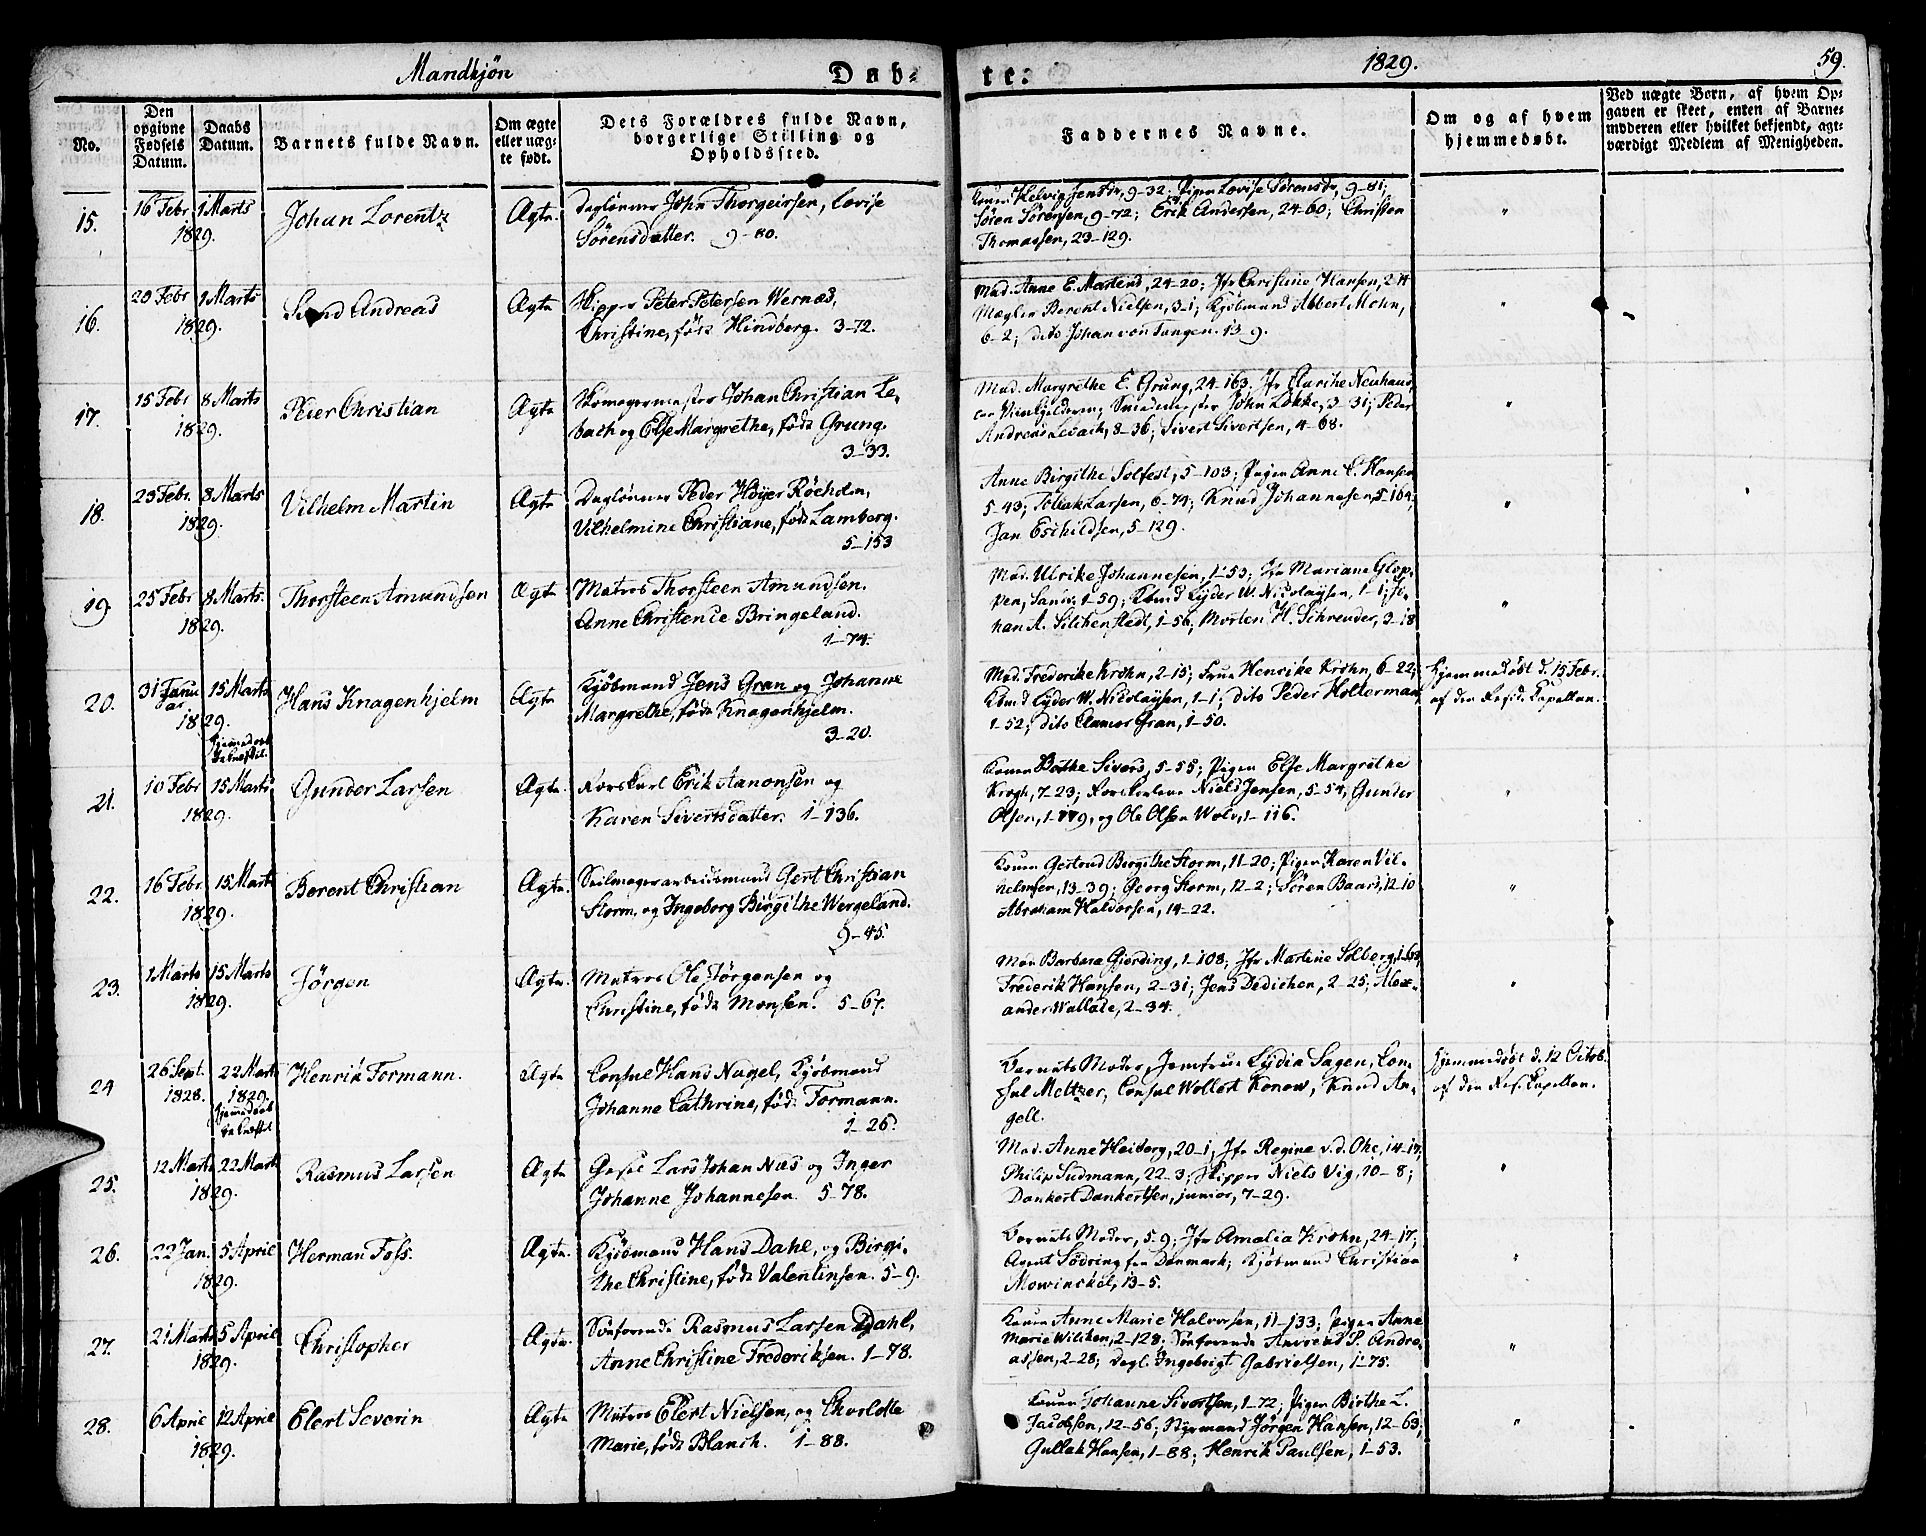 Mandkjön
Døb-
te.
1829.
59.
No.
Den opgivne Fødsels Datum.
Daabs Datum.
Barnets fulde Navn.
Om ægte eller uægte født.
Dets Forældres fulde Navn, borgerlige Stilling og Opholdssted.
Faddernes Navne.
Om og af hvem hjemmedøbt.
Ved uægte Børn, af hvem Opgaven er skeet, enten af Barnemoderen eller hvilket bekjendt, agtværdigt Medlem af Menigheden.
15. 16 Febr 1 Marts 1829. Johan Lorentz Ægte.
Daglönner John Thorgeirsen, Lovise
Sörensdatter. 9-80.
Konen Helvig Jensdr, 9-32; Pigen Lovise Sörensdr, 9-81;
Sören Sörensen, 9-72; Erik Andersen, 24-60; Christen
Thomassen, 23-129.
16. 20 Febr 1 Marts 1829. Andreas Ægte
Skipper Peter Petersen Wernæs,
Christine, född Hindberg. 3-72.
Mad. Anne E. Martend, 24-20; Jfr Christine Hansen,
Mægler Berent Nielsen, 3-1; Kjöbmand Albert Mohn,
6-2; dito Johan von Tangen. 13-9.
17. 15 Febr 8 Marts 1829. Peter Christian Ægte
Skomagermester Johan Christian Le-
bach og Else Margrethe, född Grung.
3-33.
Mad. Margrethe E. Grung, 24-163. Jfr
Smedemester John Lökke, 3-31; Peder
Andreas 8-36; Sivert Sivertsen, 4-68.
18. 23 Febr. 8 Marts 1829. Vilhelm Martin Ægte
Daglönner Peder Höyer Röeholm,
Vilhelmine Christiane, född Lamberg.
5-153
Anne Birgithe Solfest, 5-103; Pigen Anne C. Hansen
5-43; Larsen, 6-74; Knud Johannesen, 5-164;
Jan Eschildsen, 5-129.
19 25 Febr 8 Marts. 1829. Thorsteen Amundsen Ægte
Matros Thorsteen Amundsen.
Anne Christence Bringeland.
1-74.
Mad. Ulrike Johannesen, 1-53; Jfr Mariane Glop-
pen, 1-59; Kbmd Lyder W. Nicolaysen, 1-1; Jo-
han A. Silchenstedt, 1-56; Morten H. Schreuder, 2-18
20. 31 Januar 15 Marts 1829. Hans Knagenhjelm Ægte
hjemmedaab bekræftet.
Kjöbmand Jens Gran og Johanne
Margrethe, född Knagenhjelm.
3-20.
Mad. Frederike Krohn, 2-15; Frue Henrike Krohn, 6-22;
Kbmd Lyder W. Nicolaysen, 1-1; dito Peder Holterman,
1-52; dito Clamer Gran, 1-50.
Hjemmedöbt d. 15 Febr.
af den Resid. Kapellan.
21. 10 Febr 15 Marts 1829. Gunder Larsen Ægte.
Rorskarl Erik Aanonsen og
Karen Sivertsdatter. 1-136.
Konen Bothe Sivers, 5-55; Pigen Else Margrethe
Krogh, 7-23; Rorskarlene Niels Jensen, 5-54, Gunder
Olsen, 1-119, og Ole Olsen Wolv, 1-116.
22. 16 Febr 15 Marts 1829. Berent Christian Ægte.
Seilmagerarbeidsmand Gert Christian
Storm, og Ingeborg Birgithe Wergeland.
9-45.
Konen Gertrud Birgithe Storm, 11-20; Pigen Karen Vil-
helmsen, 13-39; Georg Storm, 12-2; Sören Baars, 12-10
Abraham Haldorsen, 14-22.
23. 1 Marts 15 Marts 1829. Jörgen Ægte.
Matros Ole Jörgensen og
Christine, född Monsen. 5-67.
Mad Barbara Gjerding, 1-108; Jfr Martine Solberg, 1-63,
Frederik Hansen, 2-31; Jens Dedichen, 2-25; Alex-
ander Wallace, 2-34.
24 26 Sept. 1828. 22 Marts 1829. Henrik Formann. Ægte
hjemmedaab bekræftet
Consul Hans Nagel, Kjöbmand
Johanne Cathrine, född Formann.
1-26.
Barnets Moder, Jomfrue Lydia Sagen, Con-
sul Meltzer, Consul Wollert Konow, Knud An-
gell.
Hjemmedöbt d. 12 Octob.
af den Res. Kapellan.
25. 12 Marts 22 Marts 1829. Rasmus Larsen Ægte
Lars Johan Næs og Inger
Johanne Johannesen. 5-78.
Mad. Anne Heiberg, 20-1, Jfr Regine v. d. Ohe, 14-17;
Philip Sudmann, 22-3; Skipper Niels Vig, 10-8;
Dankert Dankertsen, junior, 7-29.
26. 22 Jan. 5 April 1829. Herman Foss. Ægte.
Kjöbmand Hans Dahl, og Birgi-
the Christine, född Valentinsen. 5-9.
Barnets Moder, 5-9; Jfr Amalia Krohn, 24-17;
Agent Södring fra Danmark; Kjöbmand Christian
Mowinckel, 13-5.
27. 21 Marts 5 April 1829. Christopher Ægte.
Rasmus Larsen Dahl,
Anne Christine Frederiksen. 1-78.
Konen Anne Marie Halvorsen, 11-133; Pigen Anne
Marie Wilcken, 2-128; Andreas S. Andre-
assen, 2-28; Dagl. Ingebrigt Gabrielsen, 1-75.
28. 6 April 12 April 1829. Elert Severin Ægte
Matros Elert Nielsen, og Charlotte
Marie, född Blanch. 1-88.
Konen Johanne Sivertsen, 1-72; Pigen Birthe L.
Jacobsen, 12-56; Styrmand Jörgen Hansen, 12-63;
Gullak Hansen, 1-88; Henrik Paulsen, 1-53.